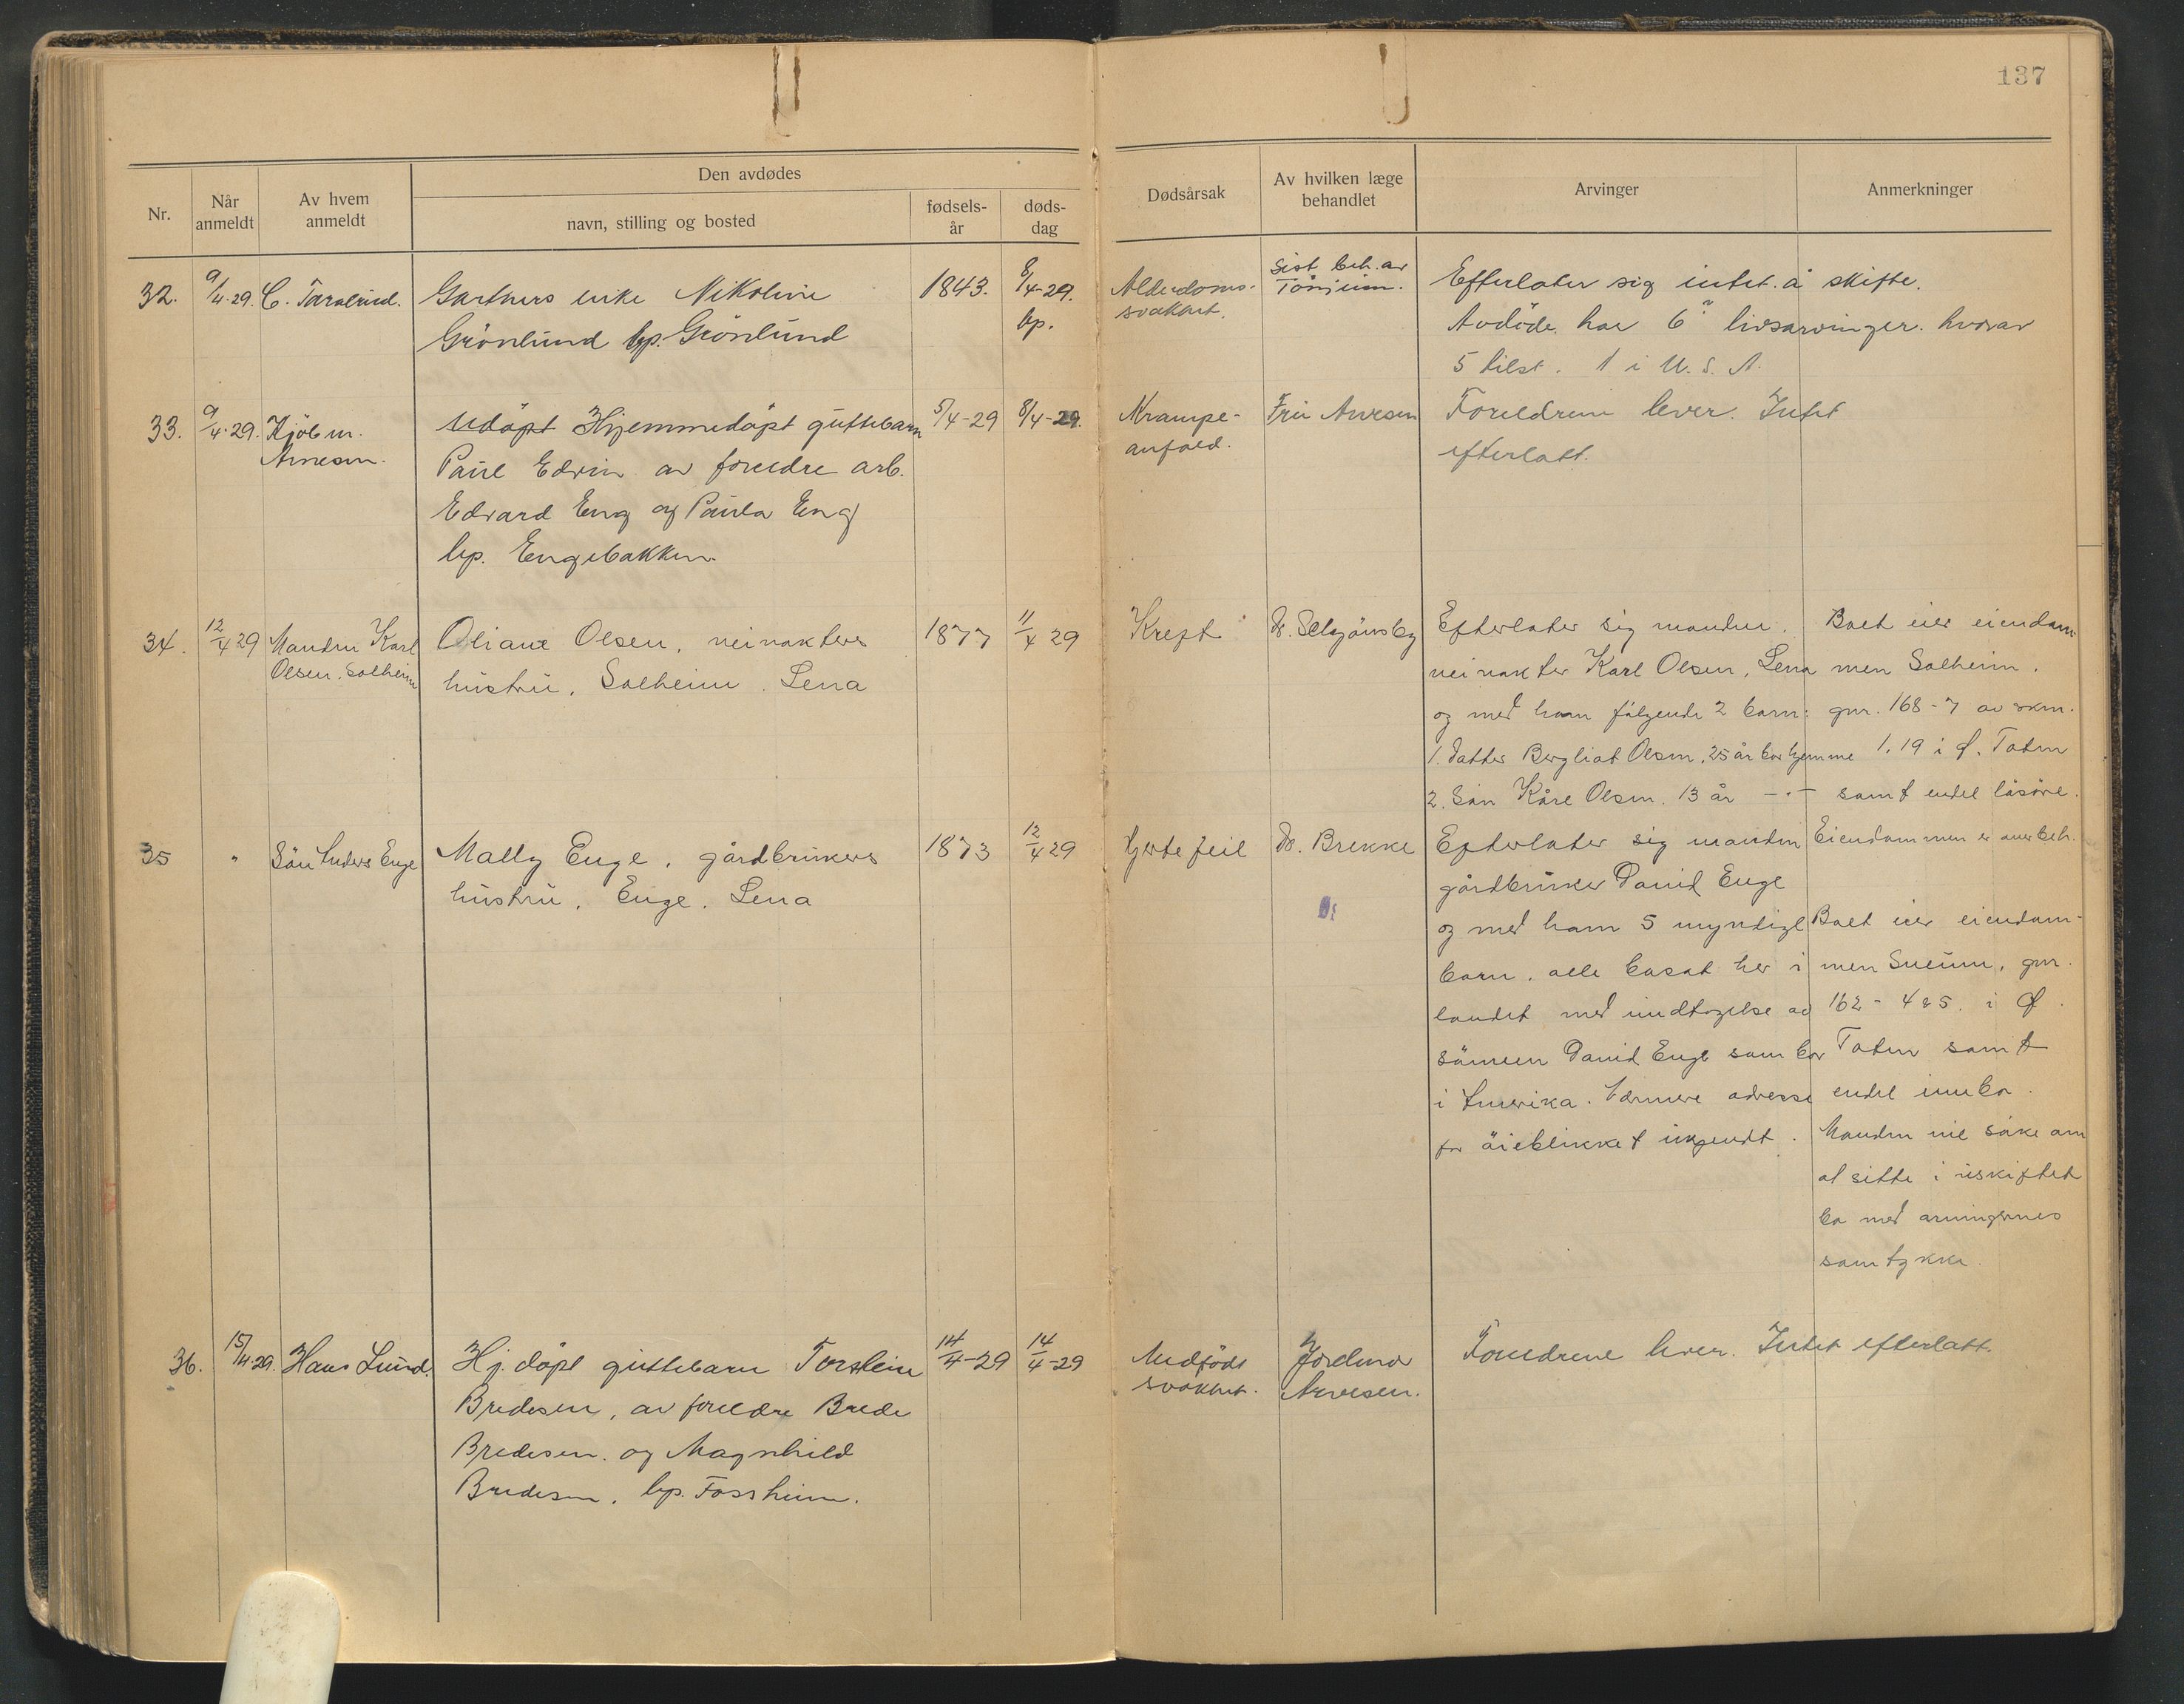 137
Nr.
Når anmeldt
Av hvem anmeldt
Den avdødes
navn, stilling og bosted
fødsels-år
døds-dag
Dødsårsak
Av hvilken læge behandlet
Arvinger
Anmerkninger
32.
9/4-29.
C.
Gartners enke Nikoline
Grönlund bp. Grönlund
1843.
8/4-29.
bp.
Alderdoms-
svakhet.
Sist beh. av
Efterlater sig intet å skifte.
Avdöde har 6 livsarvinger. hvorav
5 tilst. 1 i U.S.A.
33.
9/4-29.
Kjöbm.
Arnesen.
Udöpt Hjemmedöpt guttebarn
Paul Edvin av foreldre arb.
Edvard Eng og Paula Eng
bp. Engebakken.
5/4-29
8/4-29.
Krampe-
anfald.
Fru Arnesen
Foreldrene lever. Intet
efterlatt.
34.
12/4 29
Manden Karl
Olsen, Solheim
Oliane Olsen, veivokters
hustru, Solheim. Lena
1877
11/4 29
Kreft
Dr.
Efterlater sig manden.
veivokter Karl Olsen, Lena
og med ham følgende 2 barn:
1. Datter Bergliot Olsen, 25 år bor hjemme
2. Sön Kåre Olsen. 13 år -"-
Boet eier eiendom-
men Solheim.
gnr. 168-7 av skm.
1,19 i Ø. Toten
samt endel lösöre.
35
"
Sön Anders Enge
Mally Enge, gårdbrukers
hustru, Enge. Lena
1873
12/4 29
Hjertefeil
Dr. Brekke
Efterlater sig manden
gårdbruker David Enge
og med ham 5 myndige
barn, alle bosat her i
landet med undtagelse av
sönnen David Enge som bor
i Amerika. Nærmere adresse
for öieblikket ukjendt.
Eiendommen er
Boet eier eiendom-
men Sneum, gnr.
162- 4 & 5. i Ø.
Toten samt
endel innbo.
Manden vil söke om
at sitte i uskiftet
bo med arvingernes
samtykke
36.
15/4-29.
Hans Lund.
Hj. döpt guttebarn Torstein
Bredesen, av foreldre Brede
Bredesen. og Magnhild
Bredesen. bp. Fossheim.
14/4-29
14/4-29
Medfödt
svakhet.
Jordmor
Arnesen.
Foreldrene lever. Intet efterlatt.